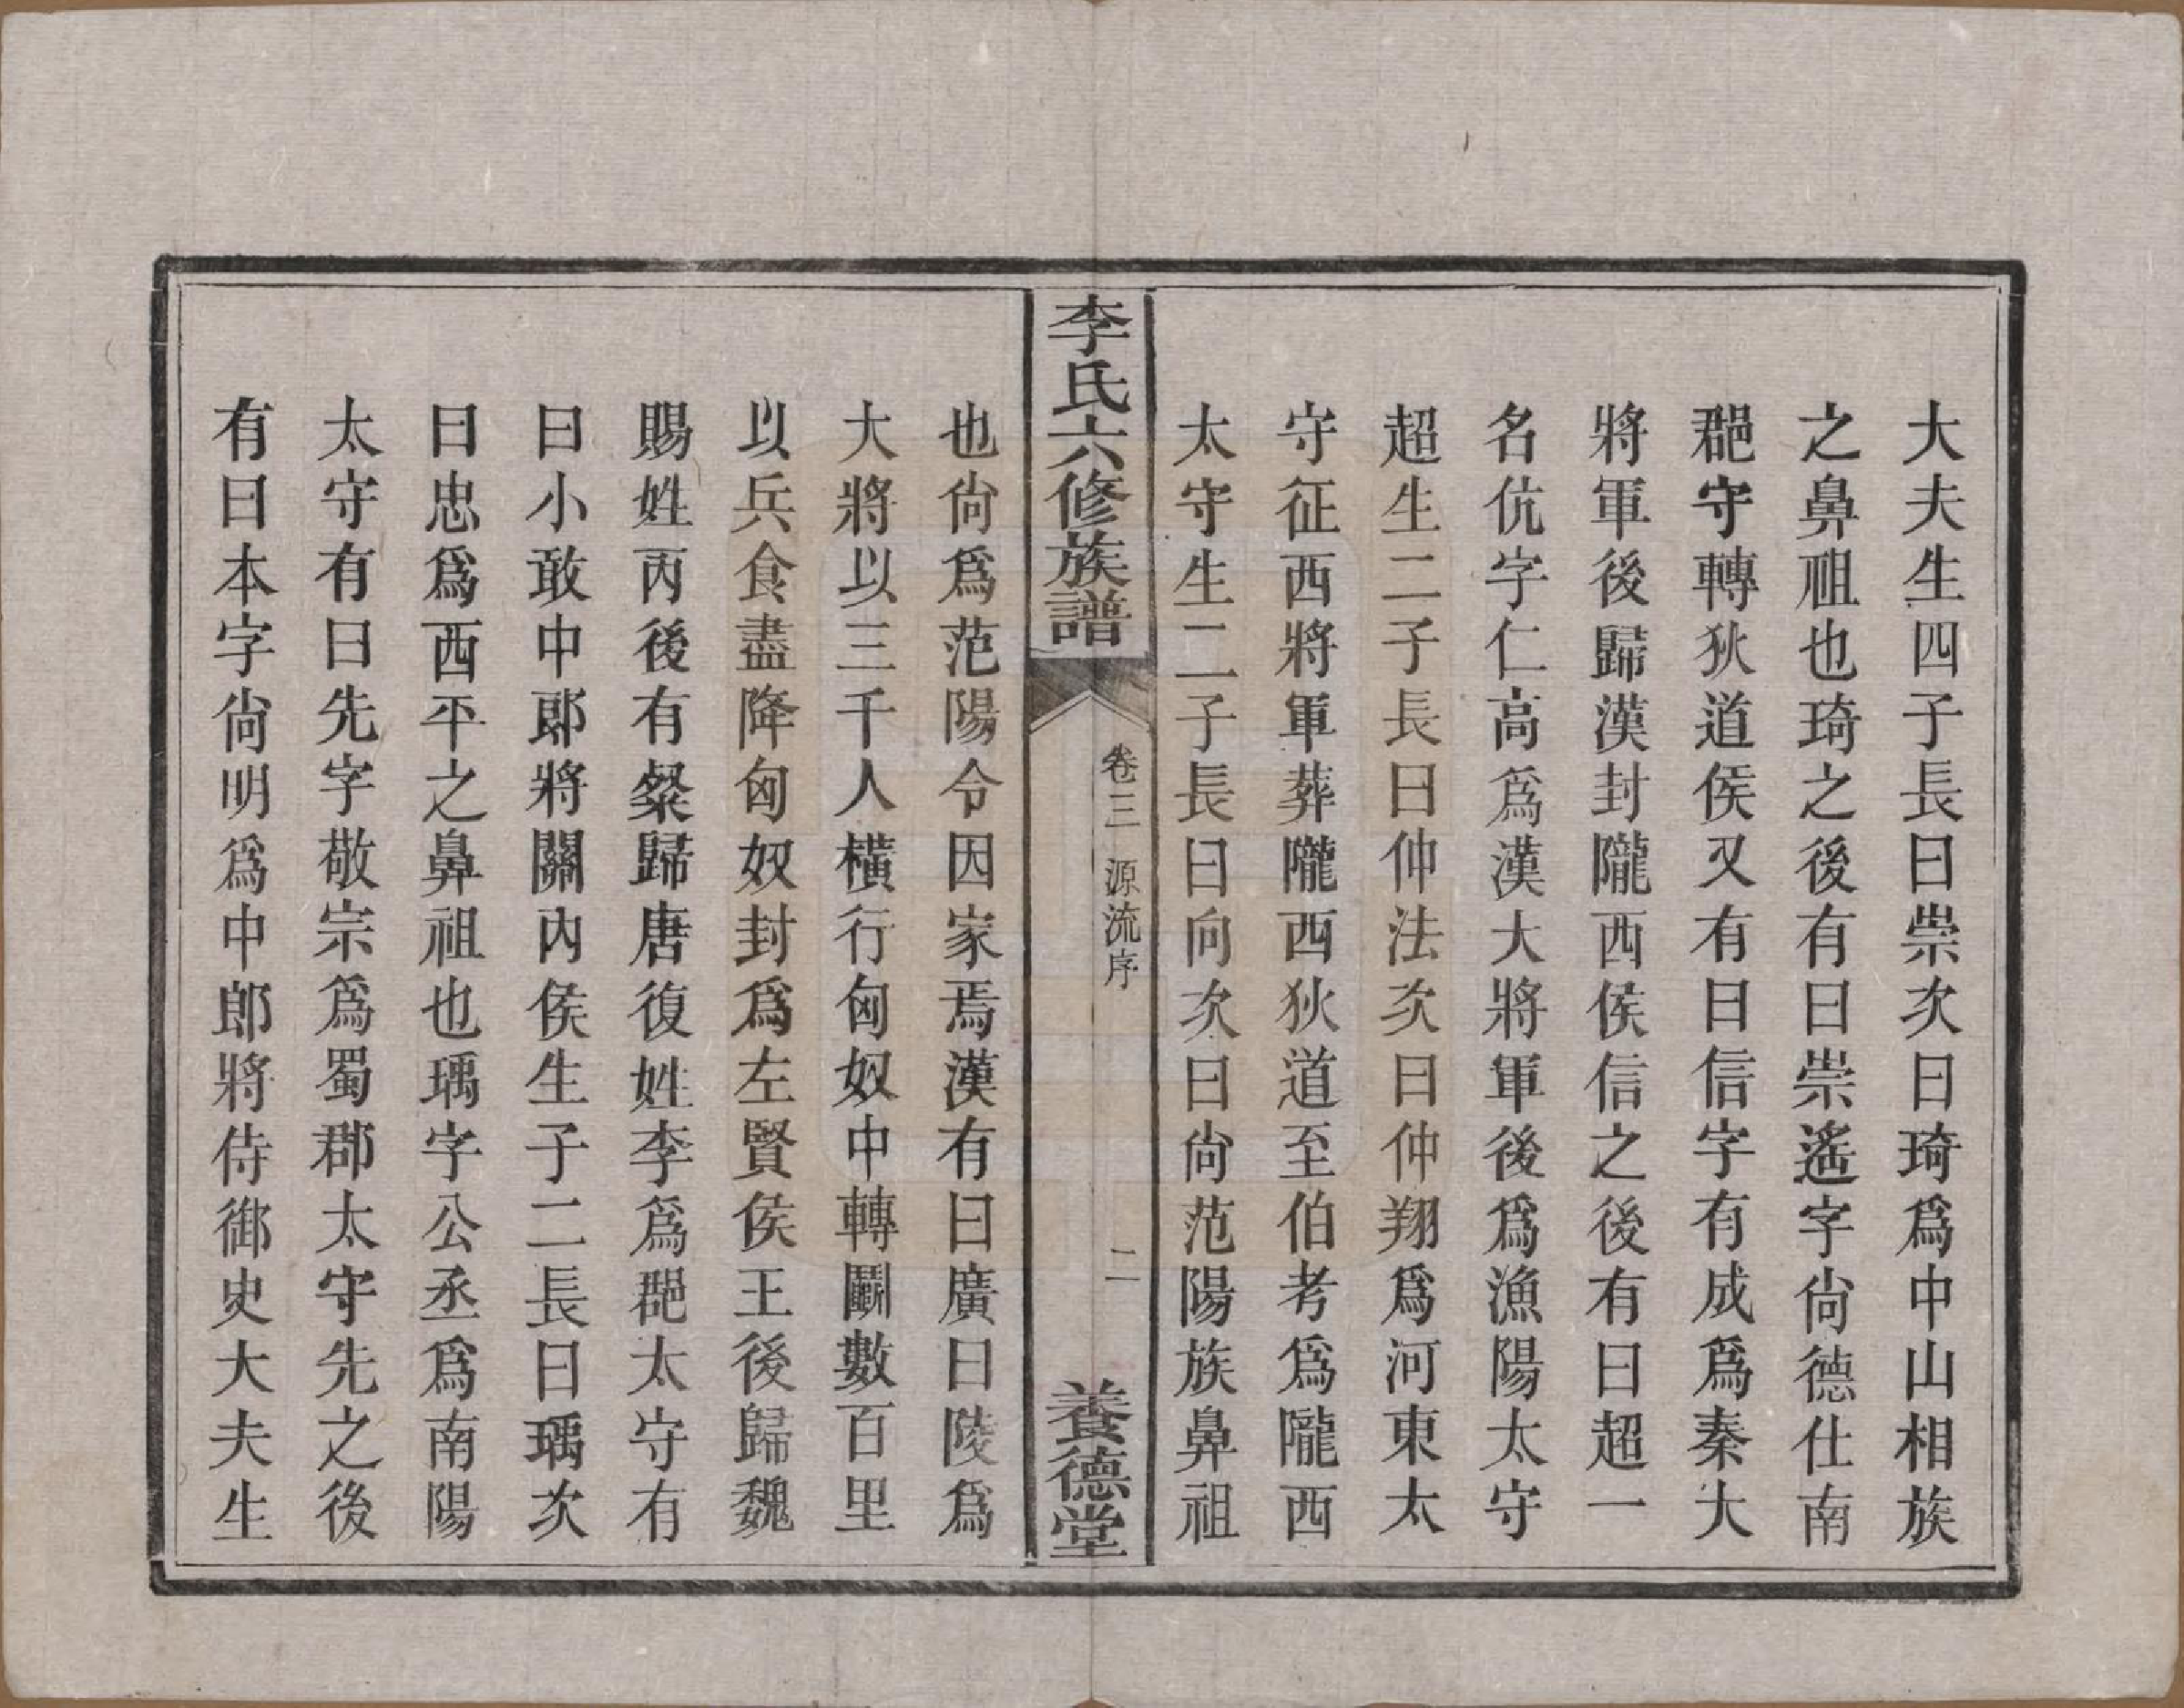 大夫生四子長曰崇次曰琦爲中山相族
之鼻祖也琦之後有曰崇遙字尙德仕南
郡守轉狄道侯又有曰信字有成爲秦大
將軍後歸漢封隴西侯信之後有曰超一
名伉字仁高爲漢大將軍後爲漁陽太守
超生二子長曰仲法次曰仲翔爲河東太
守征西將軍葬隴西狄道至伯考爲隴西
太守生二子長曰向次曰尙范陽族鼻祖
李氏六修族譜
卷三 源流序
二
養德堂
也尙爲范陽令因家焉漢有曰廣曰陵爲
大將以三千人橫行匈奴中轉鬭數百里
以兵食盡降匈奴封爲左賢侯王後歸魏
賜姓丙後有粲歸唐復姓李爲郡太守有
曰小敢中郎將關內侯生子二長曰瑀次
曰忠爲西平之鼻祖也瑀字公丞爲南陽
太守有曰先字敬宗爲蜀郡太守先之後
有曰本字尙明爲中郎將侍御史大夫生